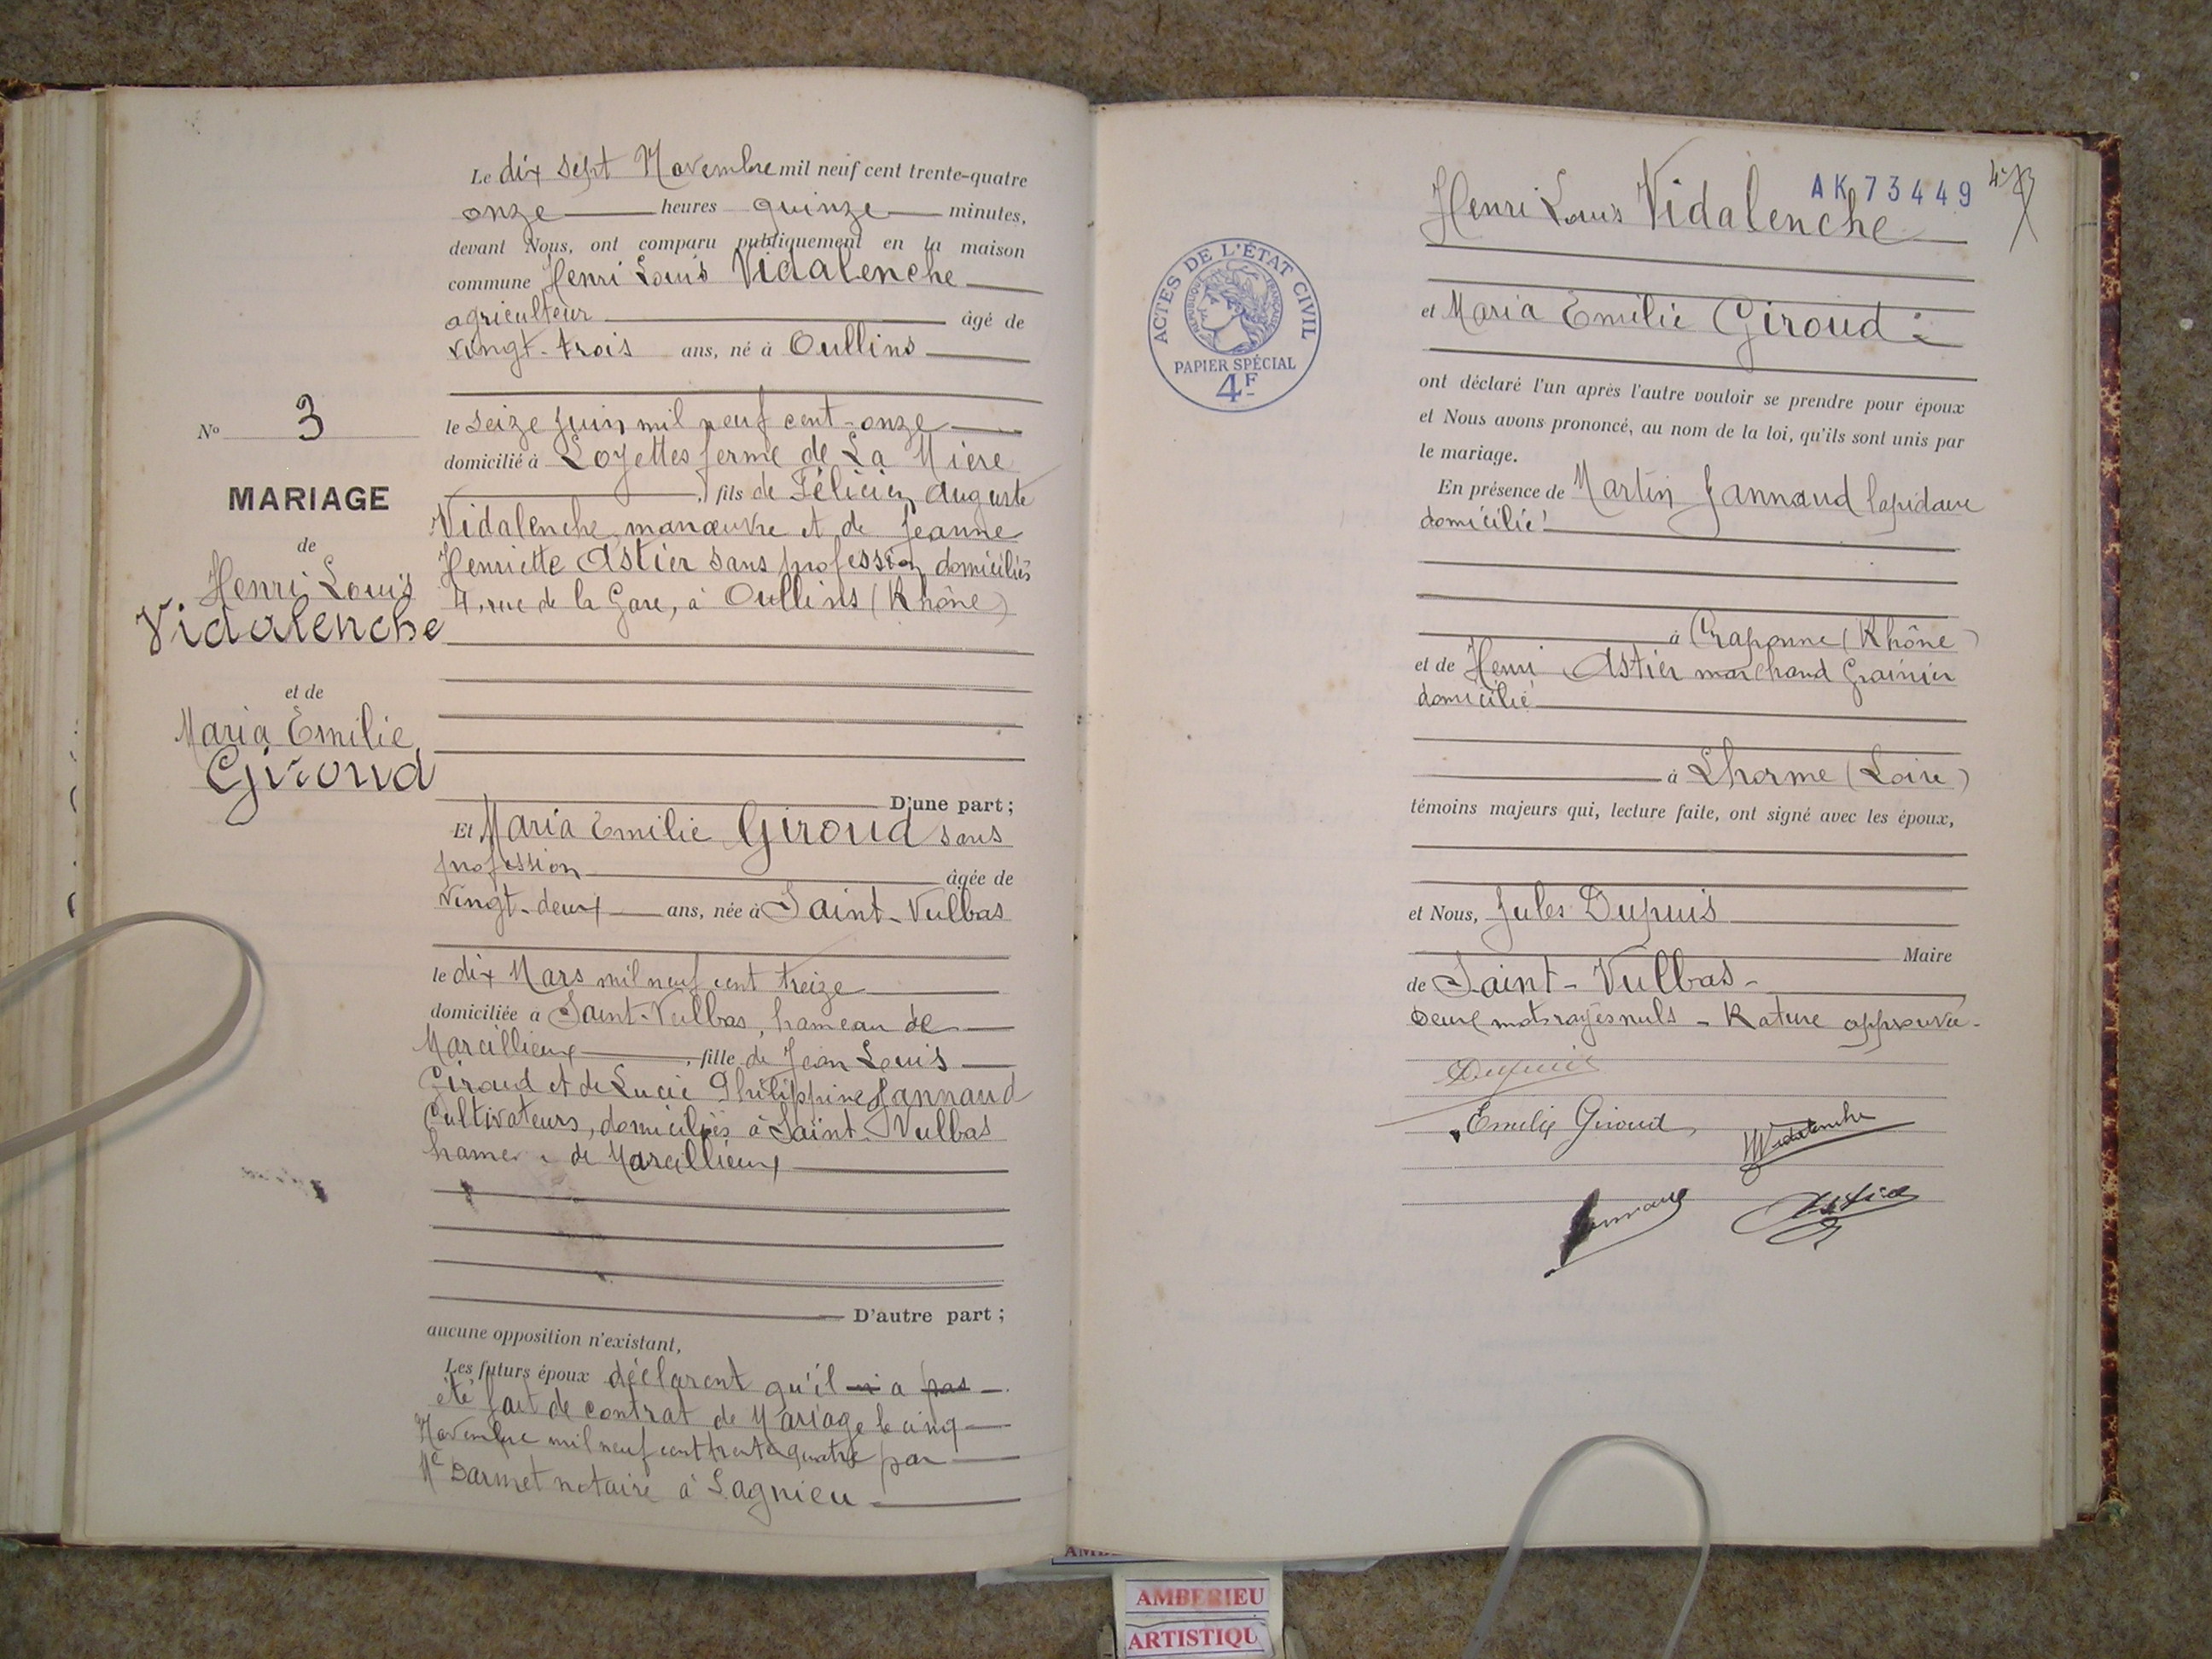 Le dix sept Novembre mil neuf cent trente-quatre
onze heures quinze minutes,
devant Nous, ont comparu publiquement en la maison
commune Henri Louis Vidalenche
agriculteur âgé de
vingt-trois ans, né à Oullins
le seize juin mil neuf cent-onze
domicilié à Loyettes ferme de La Mière
, fils de Félicien Auguste
Vidalenche manœuvre et de Jeanne
Henriette Astier sans profession domiciliés
4, rue de la Gare, à Oullins (Rhône)
D'une part;
Et Maria Emilie Giroud sans
profession âgée de
vingt-deux ans, née à Saint-Vulbas
le dix Mars mil neuf cent treize
domiciliée à Saint-Vulbas, hameau de
Marcillieux, fille de Jean Louis
Giroud et de Lucie Philippine Jannaud
Cultivateurs, domiciliés à Saint-Vulbas
de Marcillieux
D'autre part;
aucune opposition n'existant,
Les futurs époux déclarent qu'il n' a pas
été fait de contrat de Mariage le cinq
Novembre mil neuf cent trente quatre par
Me Darmet notaire à Lagnieu
No 3
MARIAGE
de
Henri Louis
Vidalenche
et de
Maria Emilie
Giroud
AK 73449
Henri Louis Vidalenche
et Maria Emilie Giroud
ont déclaré l'un après l'autre vouloir se prendre pour époux
et Nous avons prononcé, au nom de la loi, qu'ils sont unis par
le mariage.
En présence de Martin Jannaud lapidaire
domicilié
à Craponne (Rhône)
et de Henri Astier marchand Grainier
domicilié
à Lhorme (Loire)
témoins majeurs qui, lecture faite, ont signé avec les époux,
et Nous, Jules Dupuis
Maire
de Saint-Vulbas-
Deux mots rayés nuls - Rature approuvée-
Dupuis
Emilie Giroud
Vidalenche
Astier
ACTES DE L'ÉTAT CIVIL
RÉPUBLIQUE FRANÇAISE
PAPIER SPÉCIAL
4F
AMBERIEU
ARTISTIQU